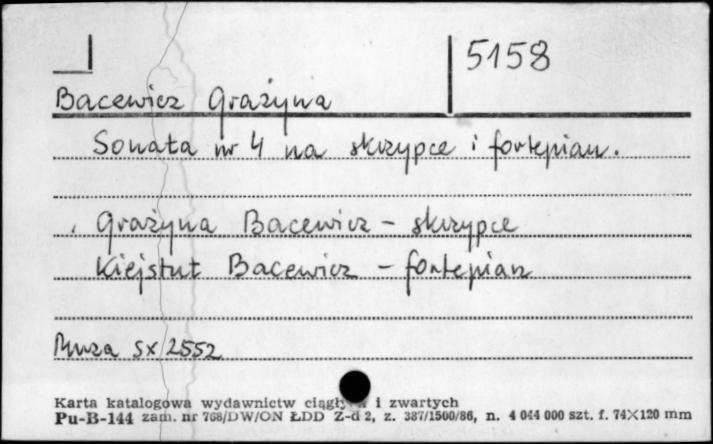 5158
Bacewicz Grażyna
Sonata nr 4 na skrzypce i fortepian.
Grażyna Bacewicz - skrzypce
Kiejstut Bacewicz - fortepian
Muza SX 2552
Karta katalogowa wydawnictw ciągłych i zwartych
Pu-B-144 zam. nr 768/DW/ON ŁDD Z-d 2, z. 387/1500/86, n. 4 044 000 szt. f. 74×120 mm